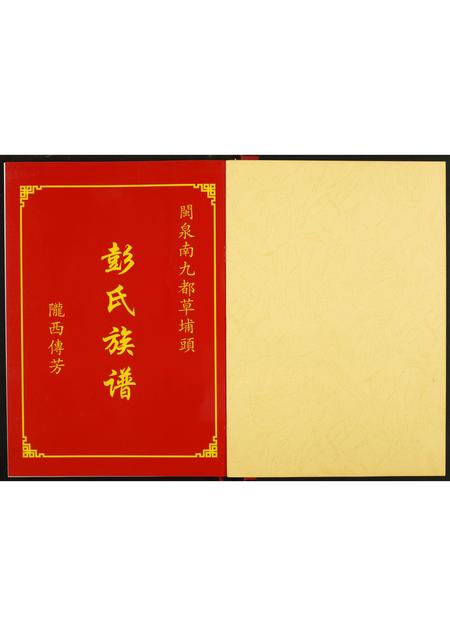 閩泉南九都草埔頭
彭氏族谱
隴西傳芳